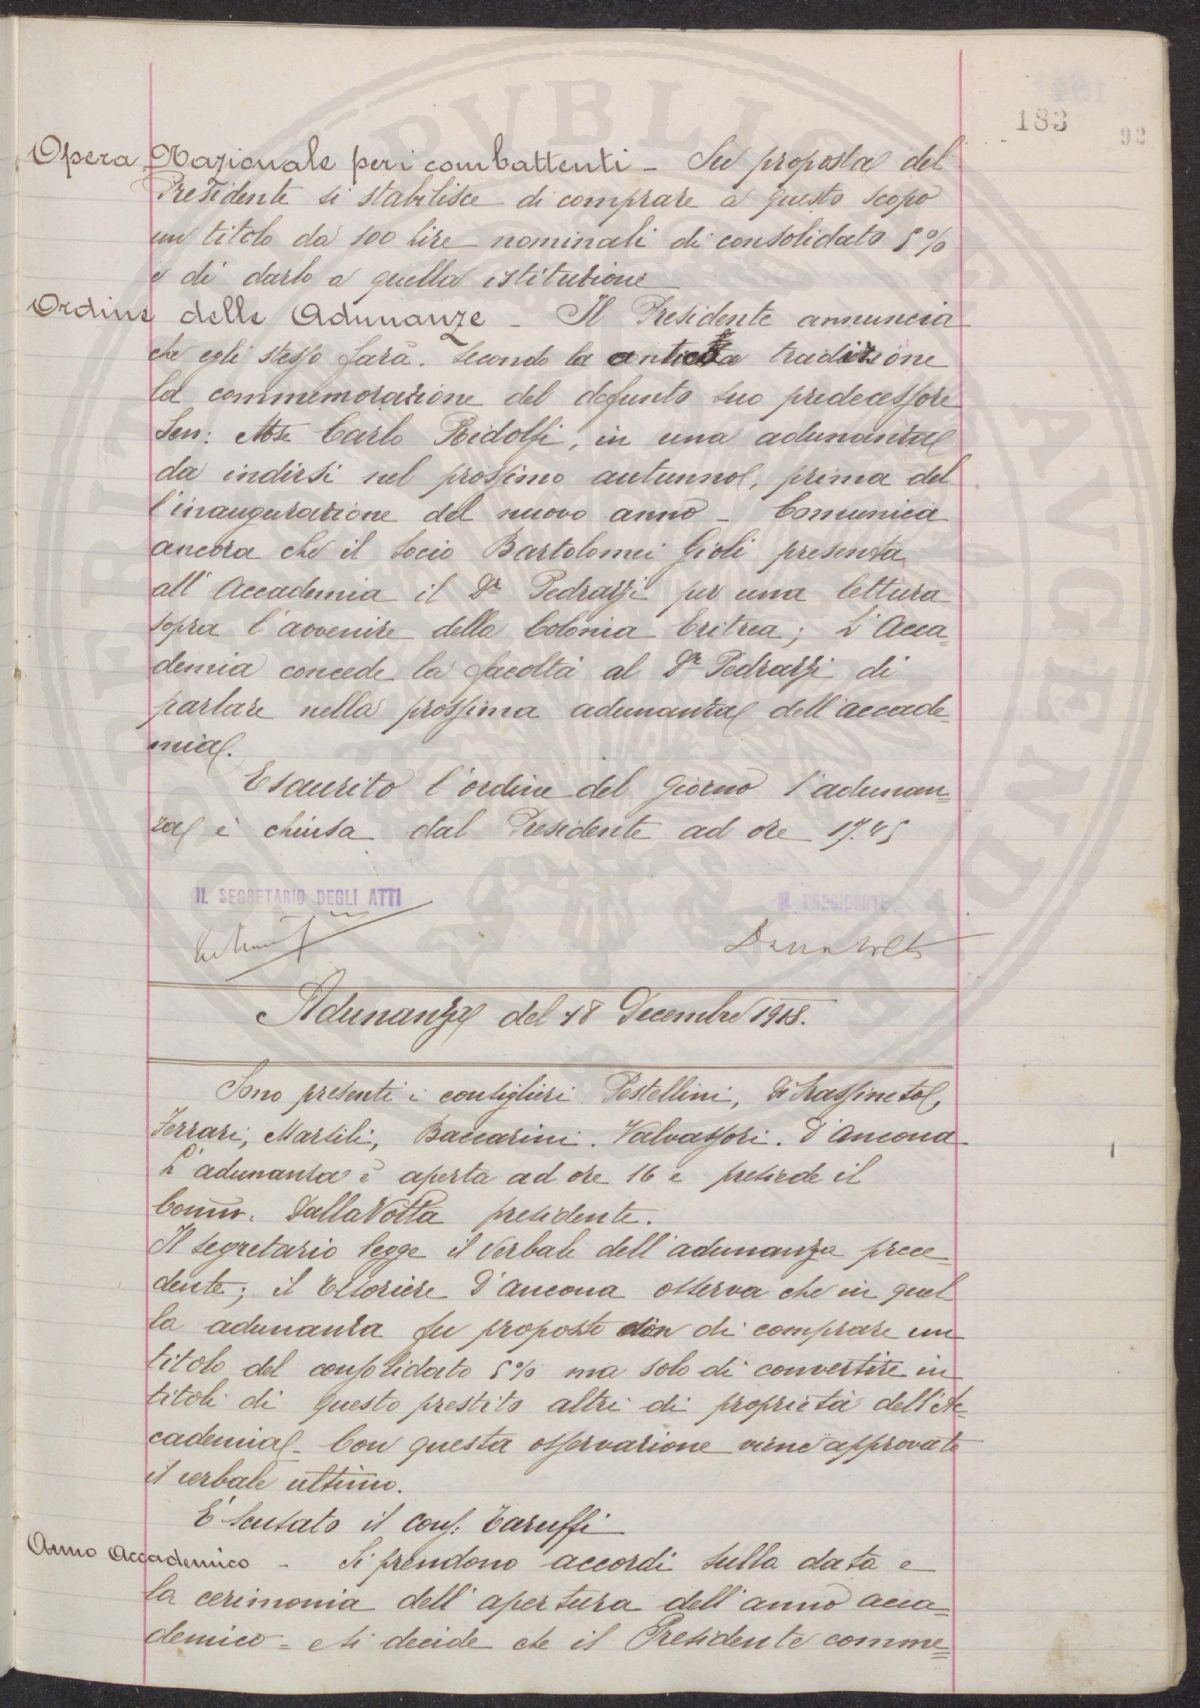 183
92
Opera Nazionale per i combattenti - Su proposta del
Presidente si stabilisce di comprare a questo scopo
un titolo da 100 lire nominali di consolidato 5%
e di darlo a quella istituzione
Ordine delle Adunanze - Il Presidente annuncia
che egli stesso farà. secondo la antica tradizione
la commemorazione del defunto suo predecessore
Sen: Mse Carlo Ridolfi, in una adunanza
da indirsi nel prossimo autunno, prima del
l'inaugurazione del nuovo anno - Comunica
ancora che il socio Bartolomei Gioli presenta
all'Accademia il Dr Pedrazzi per una lettura
sopra l'avvenire della Colonia Eritrea; L'Acca=
demia concede la facoltà al Dr Pedrazzi di
parlare nella prossima adunanza dell'accade=
mia.
Esaurito l'ordine del giorno l'adunan=
za è chiusa dal Presidente ad ore 17.45
IL SEGRETARIO DEGLI ATTI
IL PRESIDENTE
Adunanza del 18 Decembre 1918.
Sono presenti i consiglieri Pestellini, Di Frassineto,
Ferrari, Martili, Baccarini. Valvassori. D'Ancona
L'adunanza è aperta ad ore 16 e presiede il
Comm. Dalla Volta presidente.
Il segretario legge il verbale dell'adunanza prece=
dente; il tesoriere D'Ancona osserva che in quel
la adunanza fu proposto non di comprare un
titolo del consolidato 5% ma solo di convertire in
titoli di questo prestito altri di proprietà dell'Ac=
cademia. Con questa osservazione viene approvato
il verbale ultimo.
E' scusato il cons. Taruffi
Anno Accademico - Si prendono accordi sulla data e
la cerimonia dell'apertura dell'anno acca=
demico = Si decide che il Presidente comme=